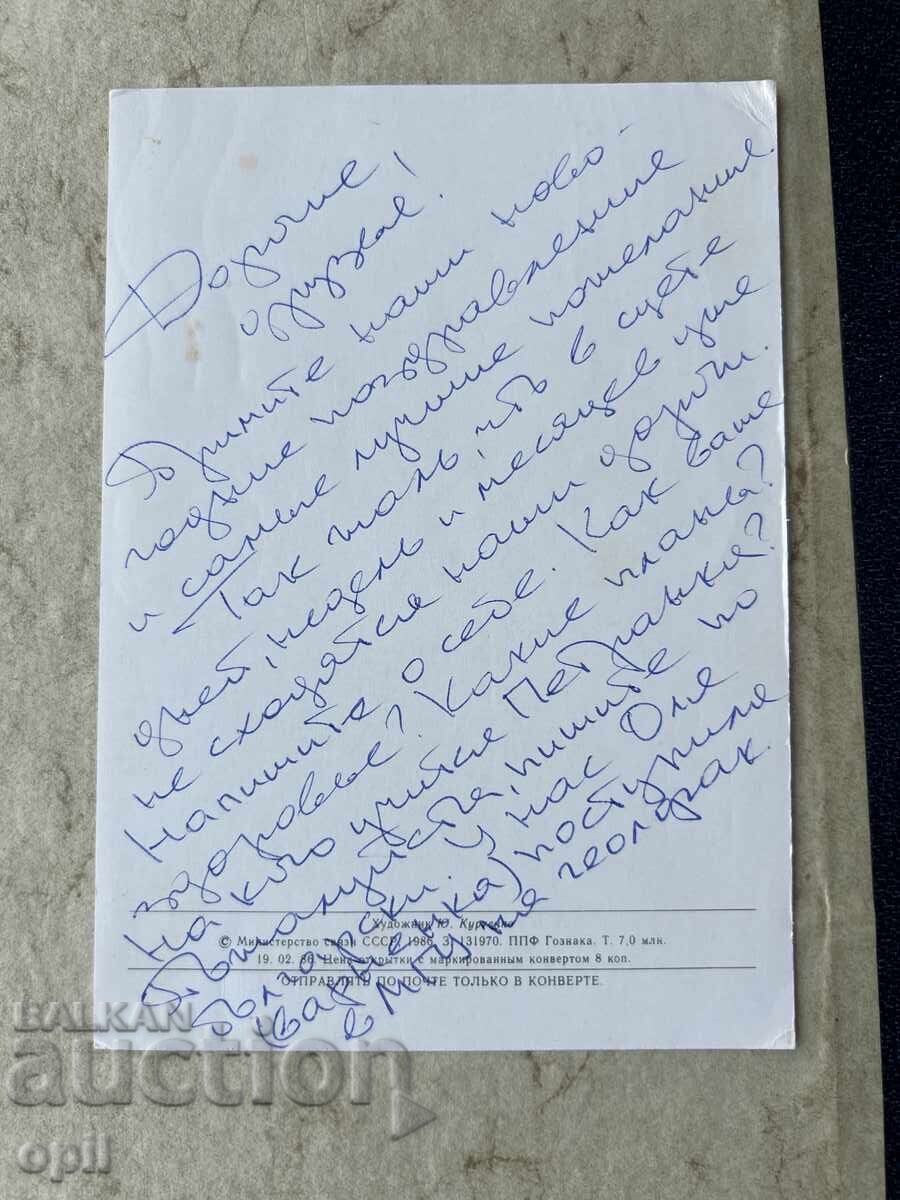 Дорогие
друзья!
Примите наши ново-
годние поздравления
и самые лучшие пожелания
Так жаль, что в суете
дней, недель и месяцев уже
не сходятся наши дороги.
Напишите о себе. Как ваше
здоровье? Какие планы?
На кого учится Петранка?
Пожалуйста, пишите по
български. У нас Оля
поступила
в МГУ на геолфак.
Художник Ю.
© Министерство связи СССР, 1986. З. 131970. ППФ Гознака. Т. 7,0 млн.
19. 02. 86. Цена открытки с маркированным конвертом 8 коп.
ОТПРАВЛЯТЬ ПО ПОЧТЕ ТОЛЬКО В КОНВЕРТЕ.
BALKAN
auction
opil